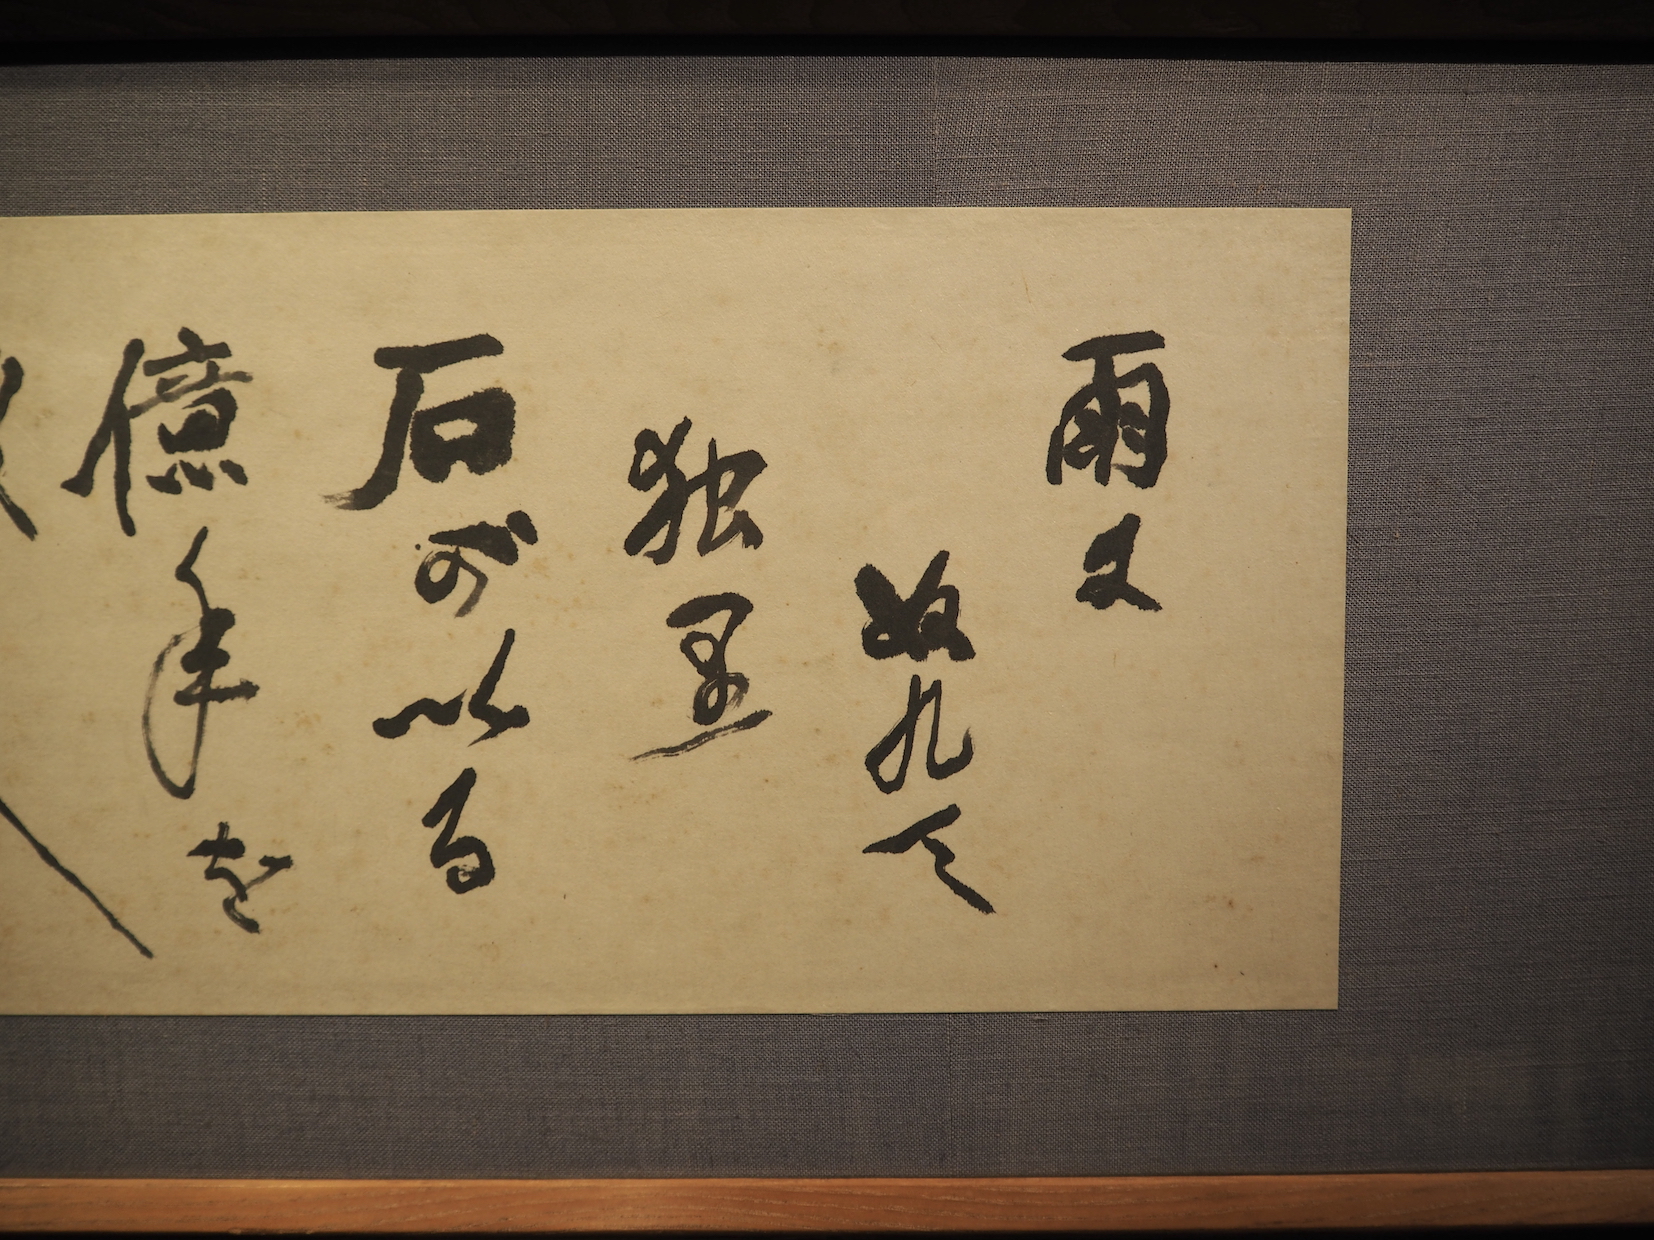 雨に
ぬれて
独り
石がいる
億年を